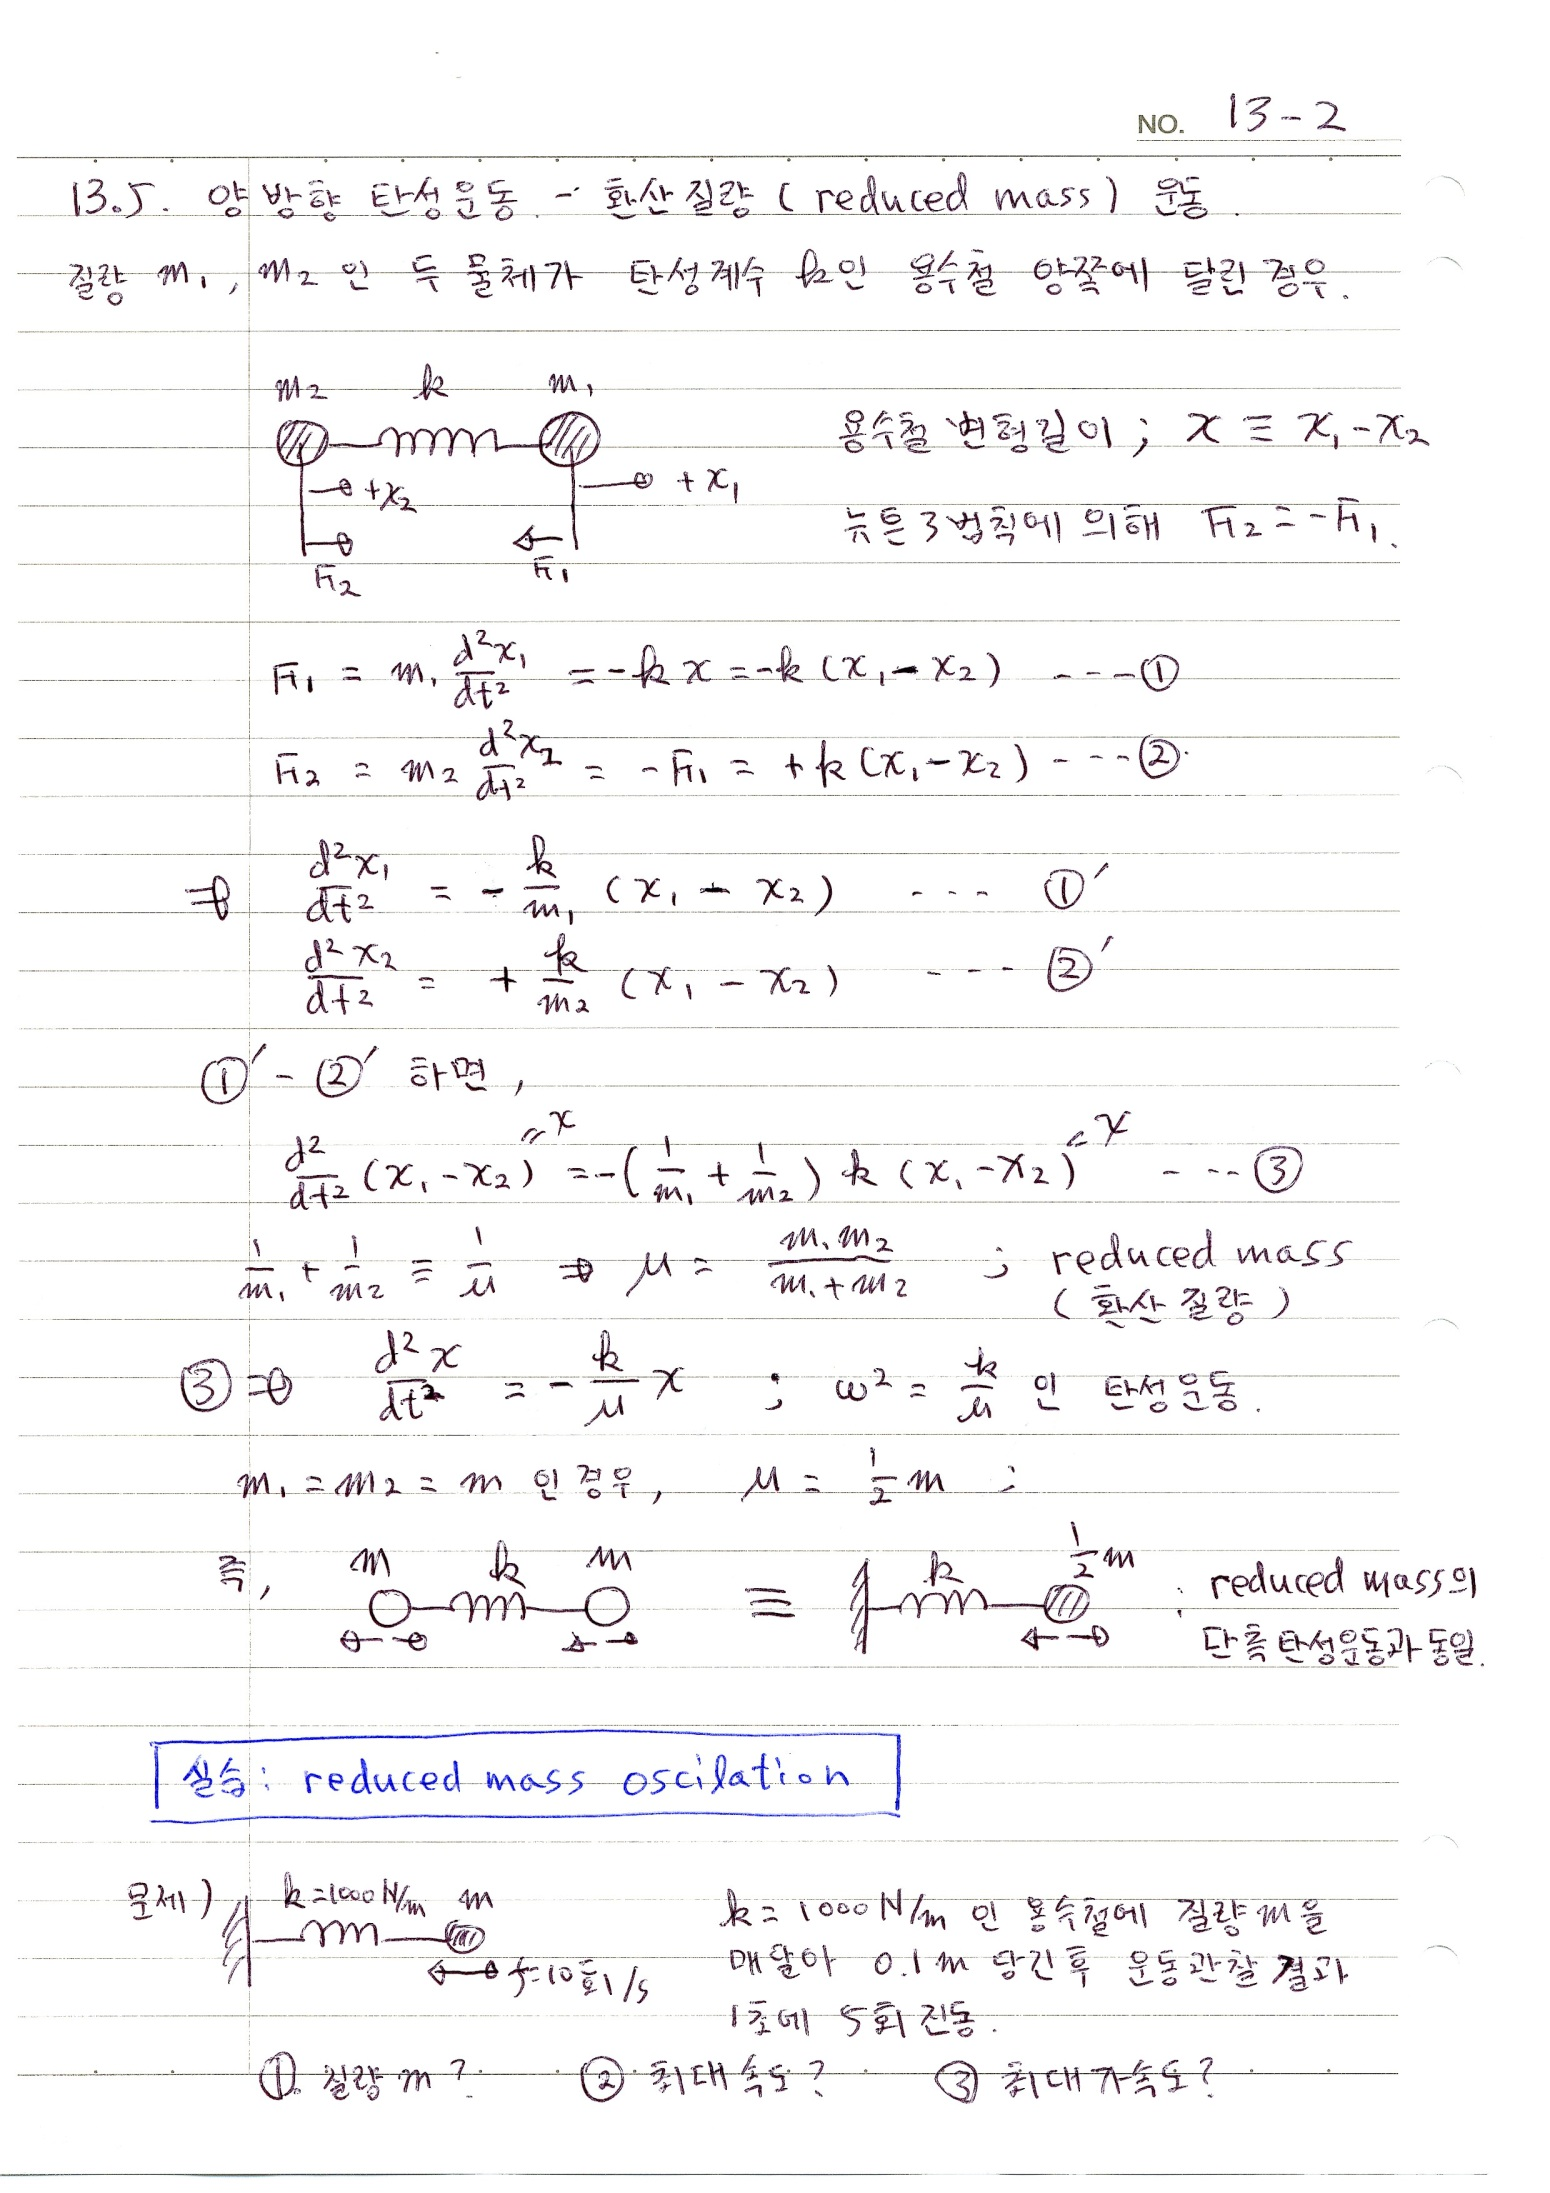 NO. 13-2
13.5. 양방향 탄성운동 - 환산질량 (reduced mass) 운동.
질량 m₁, m₂ 인 두 물체가 탄성계수 k인 용수철 양쪽에 달린 경우.
m₂ k m₁
용수철 변형길이 ; x ≡ x₁-x₂
+x₂ +x₁
뉴튼 3법칙에 의해 F₂ = -F₁.
F₂ F₁
F₁ = m₁ d²x₁/dt² = -kx = -k(x₁-x₂) ---①
F₂ = m₂ d²x₂/dt² = -F₁ = +k(x₁-x₂) ---②
⇒ d²x₁/dt² = - k/m₁ (x₁ - x₂) --- ①′
d²x₂/dt² = + k/m₂ (x₁ - x₂) ---- ②′
①′ - ②′ 하면,
=x =x
d²/dt² (x₁-x₂) = -(1/m₁ + 1/m₂) k (x₁-x₂) - --③
1/m₁ + 1/m₂ ≡ 1/μ ⇒ μ = m₁m₂/m₁+m₂ ; reduced mass
(환산 질량)
③ ⇒ d²x/dt² = - k/μ x ; ω² = k/μ 인 탄성운동.
m₁ = m₂ = m 인 경우, μ = 1/2 m ;
즉, m k m ≡ k 1/2 m ; reduced mass의
단측 탄성운동과 동일.
실습: reduced mass oscilation
문제) k=1000N/m m
k = 1000N/m 인 용수철에 질량 m을
매달아 0.1m 당긴 후 운동관찰 결과
f=10회/s
1초에 5회 진동.
①. 질량 m? ② 최대속도? ③ 최대가속도?